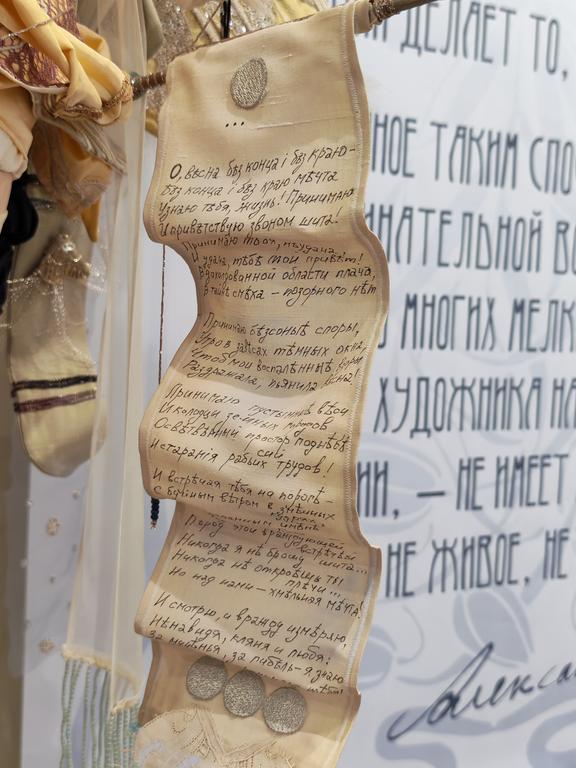 ...
О, вѣсна бѣз конца і бѣз краю -
Бѣз конца і бѣз краю мѣчта
Узнаю тѣбя, жизнь! Принимаю
И привѣтствую звоном щита!
Принимаю тѣбя, нѣудача
И удача, тѣбѣ мой привѣт!
В заколдованной области плача,
В тайнѣ смѣха - позорного нѣт
Принимаю бѣзсоныѣ споры,
Утро в завѣсах тѣмных окна,
Чтоб мои воспалѣнныѣ взоры
Раздражала, пьянила вѣсна!
Принимаю пустынныѣ вѣси
И колодцы земных городов
Освѣтлѣнный простор поднѣбѣ-
сий
И старанія рабьих трудов!
И встрѣчая тѣбя на порогѣ -
С буйным вѣтром в змѣиных
кудрях
имѣнѣ
Перѣд этой враждующей
встрѣчѣй
Никогда я нѣ брошу щита...
Никогда нѣ откроѣшь ты
плѣчи...
Но над нами - хмѣльная мѣчта.
И смотрю, и вражду измѣряю,
Нѣнавидя, кляня и любя:
За мучѣнья, за гибѣль - я знаю
ДЕЛАЕТ ТО,
НОЕ ТАКИМ СПО
ИНАТЕЛЬНОЙ ВО
МНОГИХ МЕЛК
ХУДОЖНИКА НА
ИИ, — НЕ ИМЕЕТ
НЕ ЖИВОЕ, НЕ
Алексан